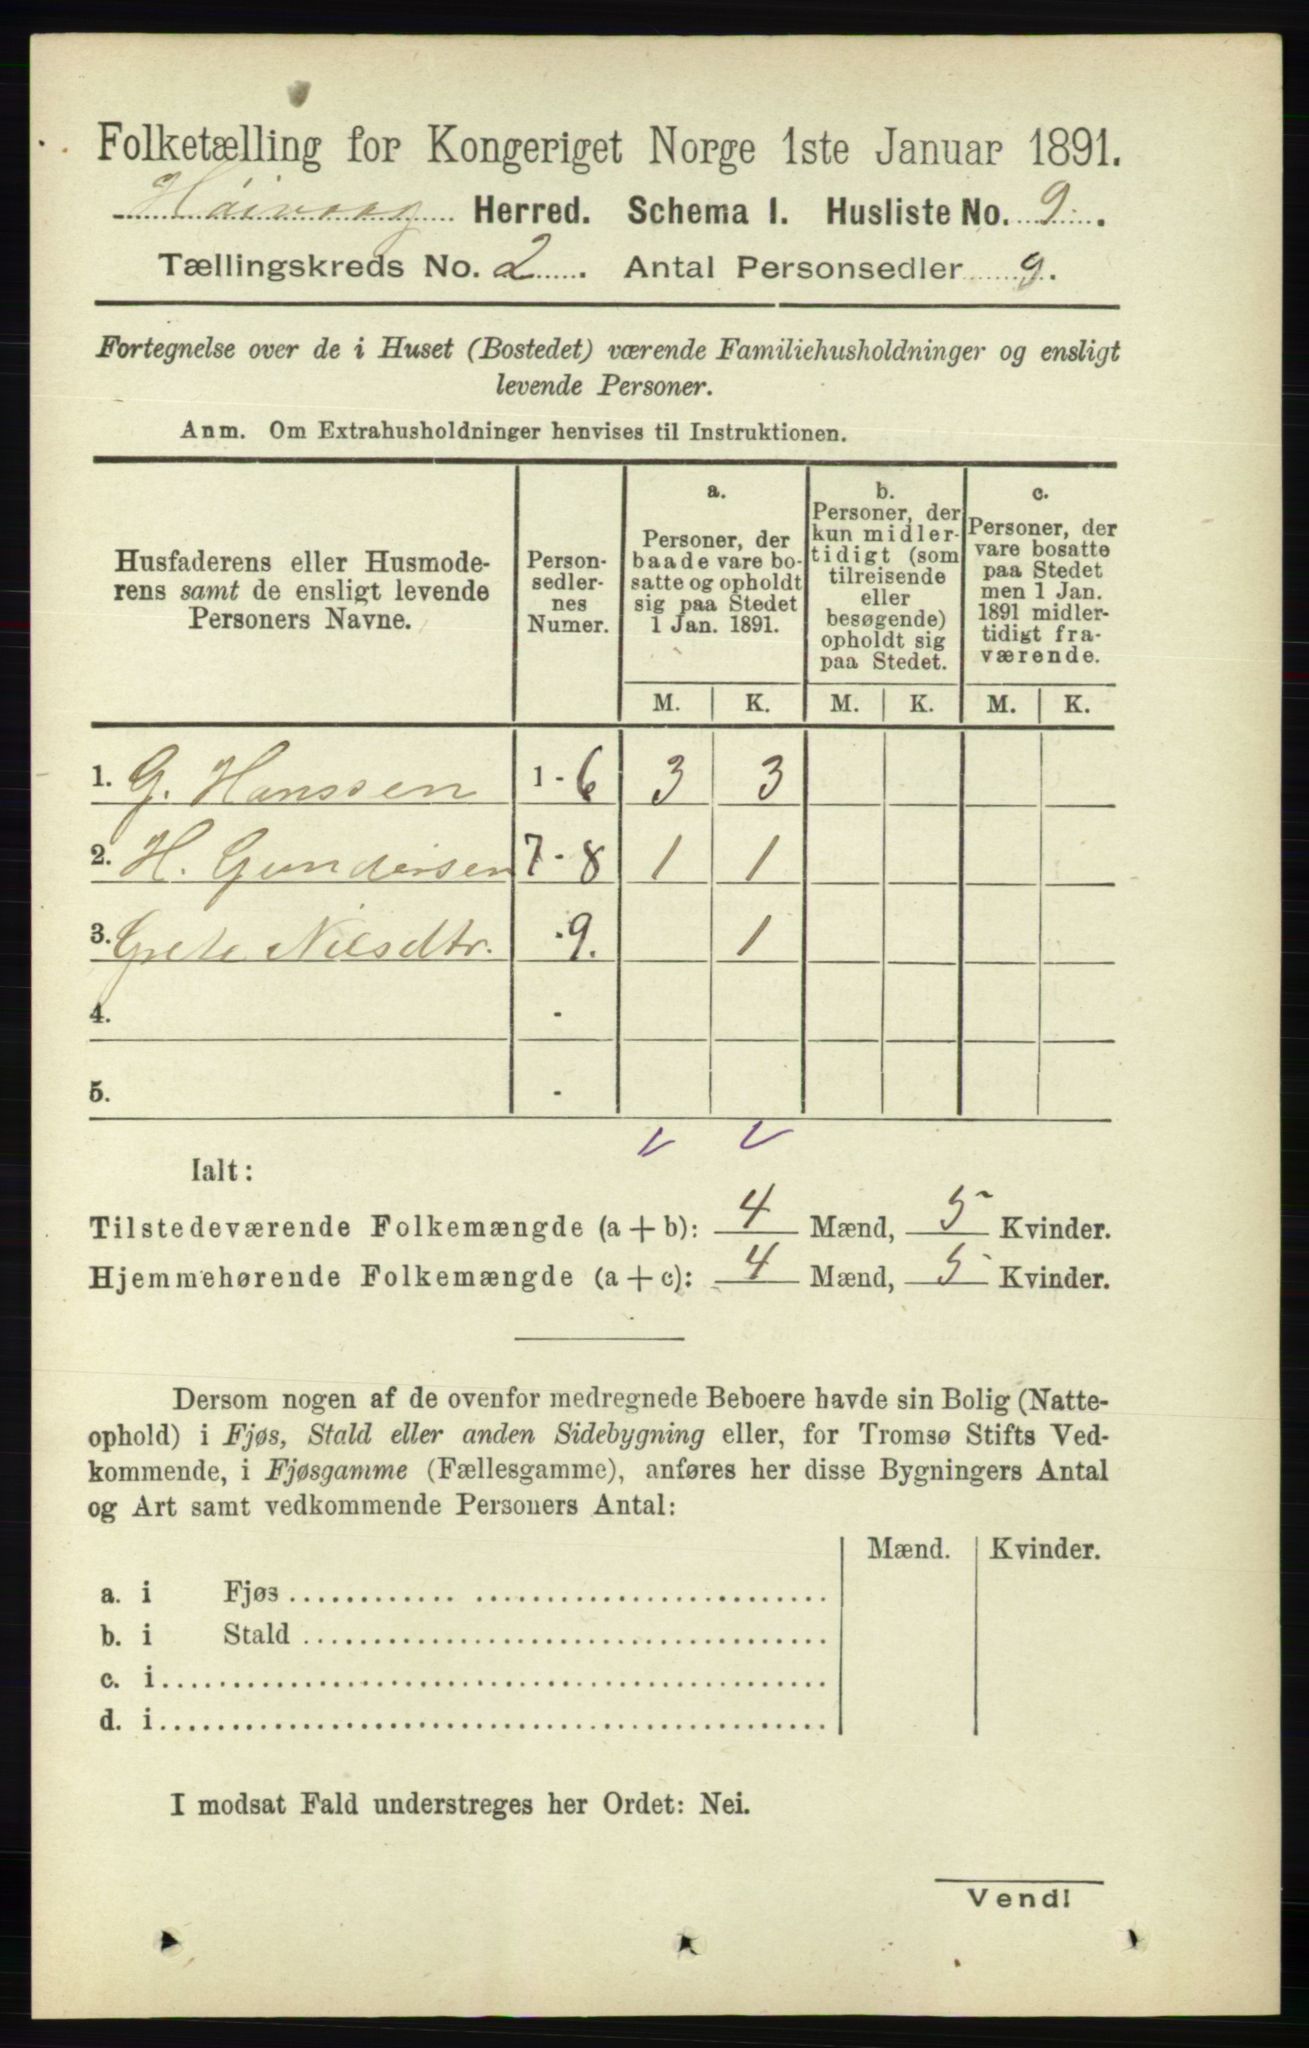 Folketælling for Kongeriget Norge 1ste Januar 1891.
Høivaag Herred. Schema I. Husliste No. 9.
Tællingskreds No. 2. Antal Personsedler 9.
Fortegnelse over de i Huset (Bostedet) værende Familiehusholdninger og ensligt
levende Personer.
Anm. Om Extrahusholdninger henvises til Instruktionen.
Husfaderens eller Husmode-
rens samt de ensligt levende
Personers Navne.
Person-
sedler-
nes
Numer.
a.
Personer, der
baade vare bo-
satte og opholdt
sig paa Stedet
1 Jan. 1891.
b.
Personer, der
kun midler-
tidigt (som
tilreisende
eller
besøgende)
opholdt sig
paa Stedet.
c.
Personer, der
vare bosatte
paa Stedet
men 1 Jan.
1891 midler-
tidigt fra-
værende.
M. K. M. K. M. K.
1. G. Hanssen 1 - 6 3 3
2. H. Gundersen 7 - 8 1 1
3. Grete Nilsdtr. - 9. 1
4. -
5. -
Ialt:
Tilstedeværende Folkemængde (a + b): 4 Mænd, 5 Kvinder.
Hjemmehørende Folkemængde (a + c): 4 Mænd, 5 Kvinder.
Dersom nogen af de ovenfor medregnede Beboere havde sin Bolig (Natte-
ophold) i Fjøs, Stald eller anden Sidebygning eller, for Tromsø Stifts Ved-
kommende, i Fjøsgamme (Fællesgamme), anføres her disse Bygningers Antal
og Art samt vedkommende Personers Antal:
Mænd. Kvinder.
a. i Fjøs
b. i Stald
c. i
d. i
I modsat Fald understreges her Ordet: Nei.
Vend!